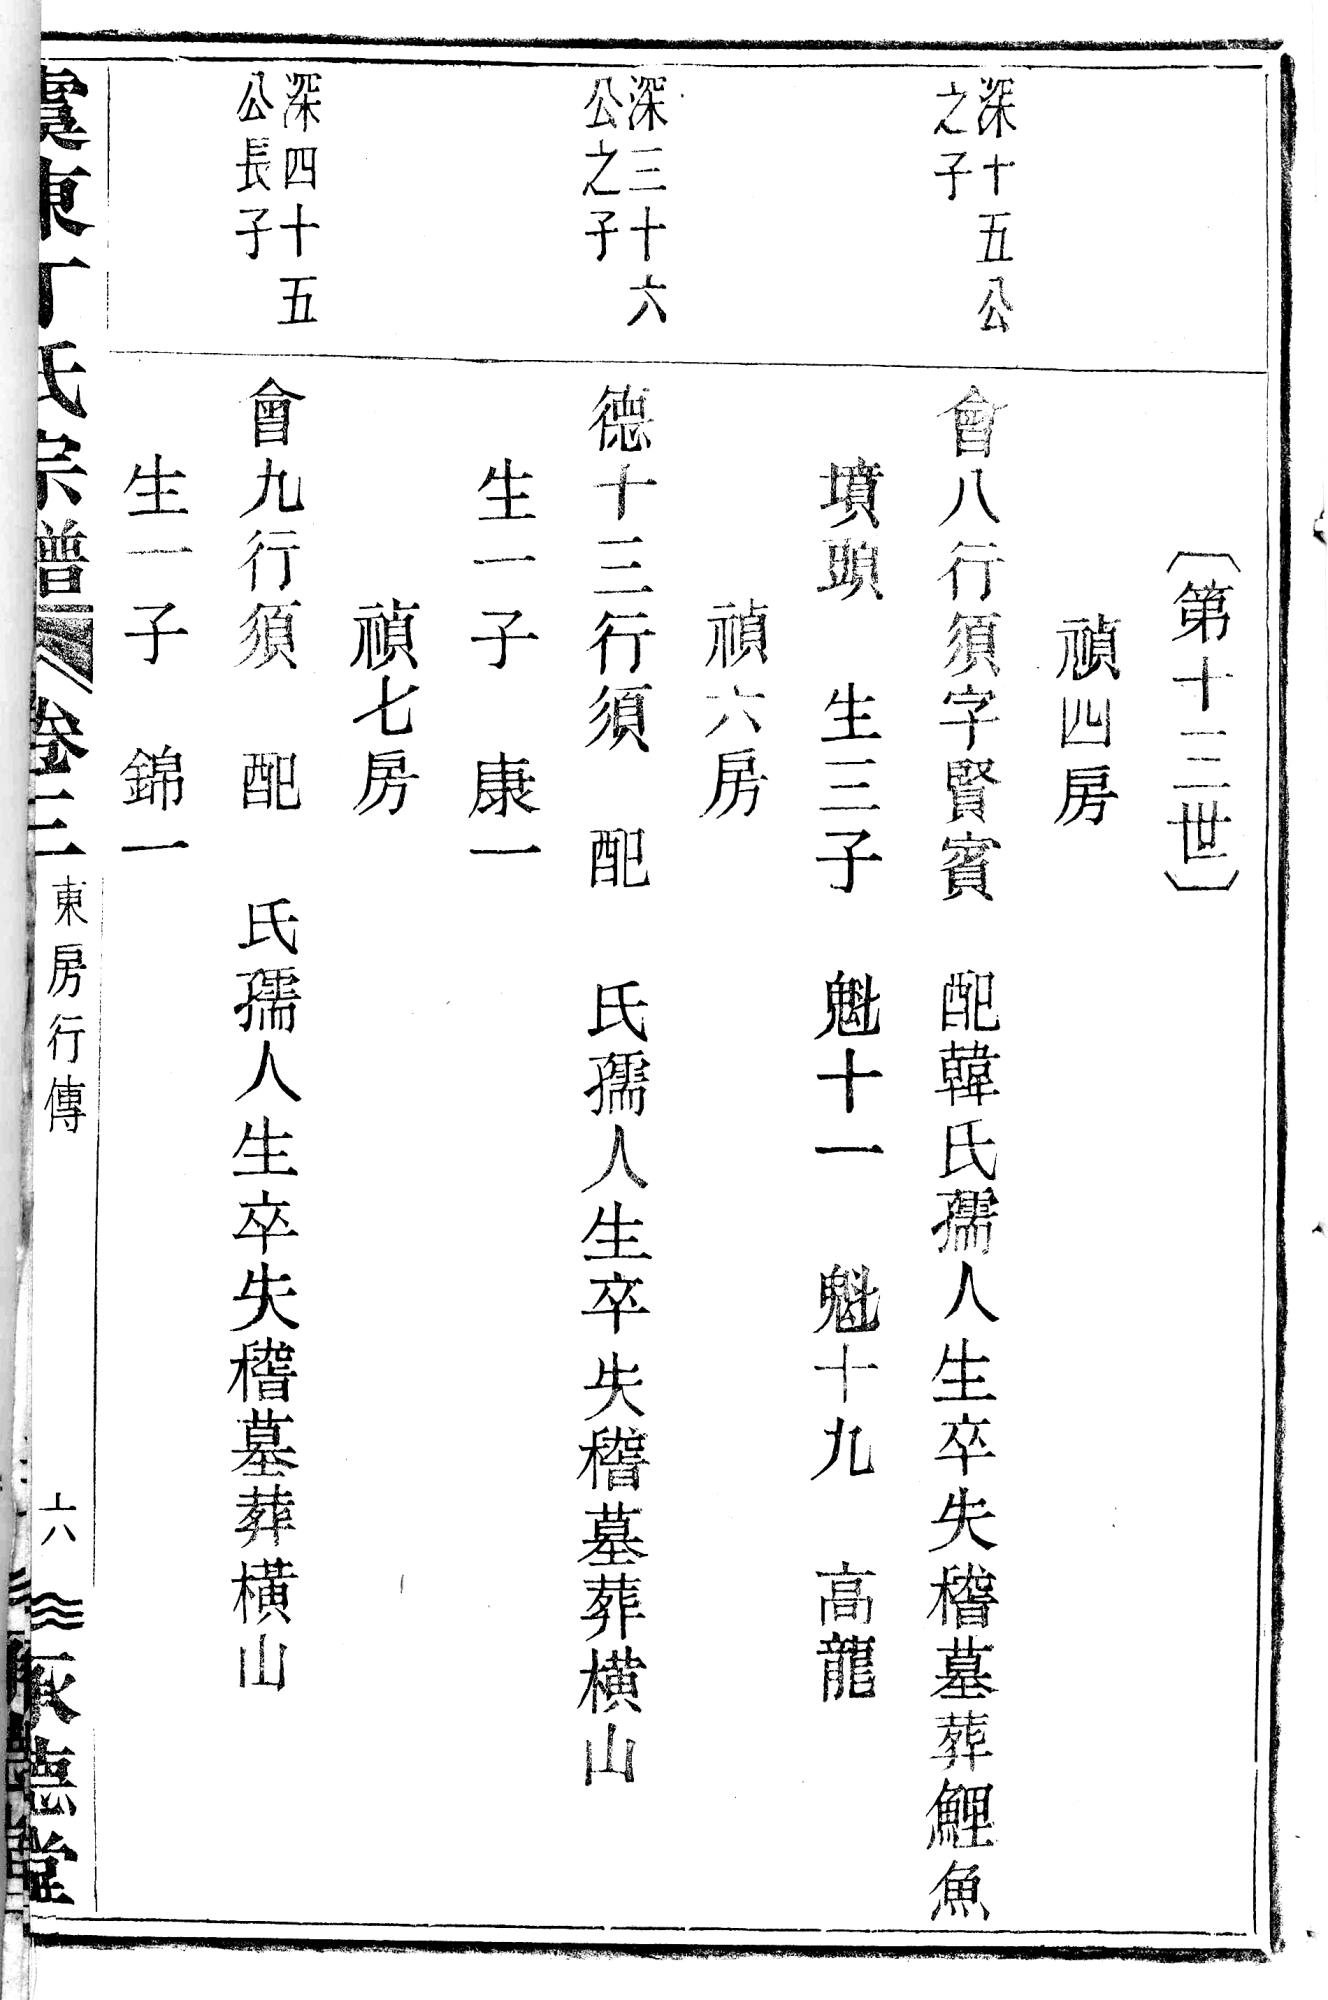 〔第十三世〕
禎四房
深十五公
之子
會八行須字賢賓　配韓氏孺人生卒失稽墓葬鯉魚
墳頭　生三子　魁十一　魁十九　高龍
禎六房
深三十六
公之子
德十三行須　配　氏孺人生卒失稽墓葬橫山
生一子　康一
禎七房
深四十五
公長子
會九行須　配　氏孺人生卒失稽墓葬橫山
生一子　錦一
虞東丁氏宗譜　卷三　東房行傳　六　承德堂